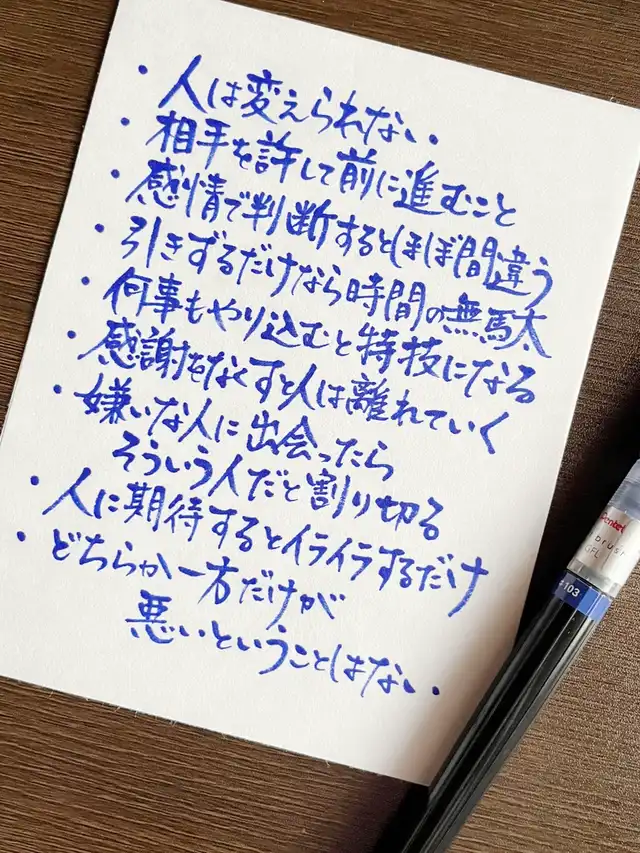 ・人は変えられない。
・相手を許して前に進むこと
・感情で判断するとほぼ間違う
・引きずるだけなら時間の無駄
・何事もやり込むと特技になる
・感謝をなくすと人は離れていく
・嫌いな人に出会ったら
そういう人だと割り切る
・人に期待するとイライラするだけ
・どちらか一方だけが
悪いということはない。
Pentel
brush
GFL
103